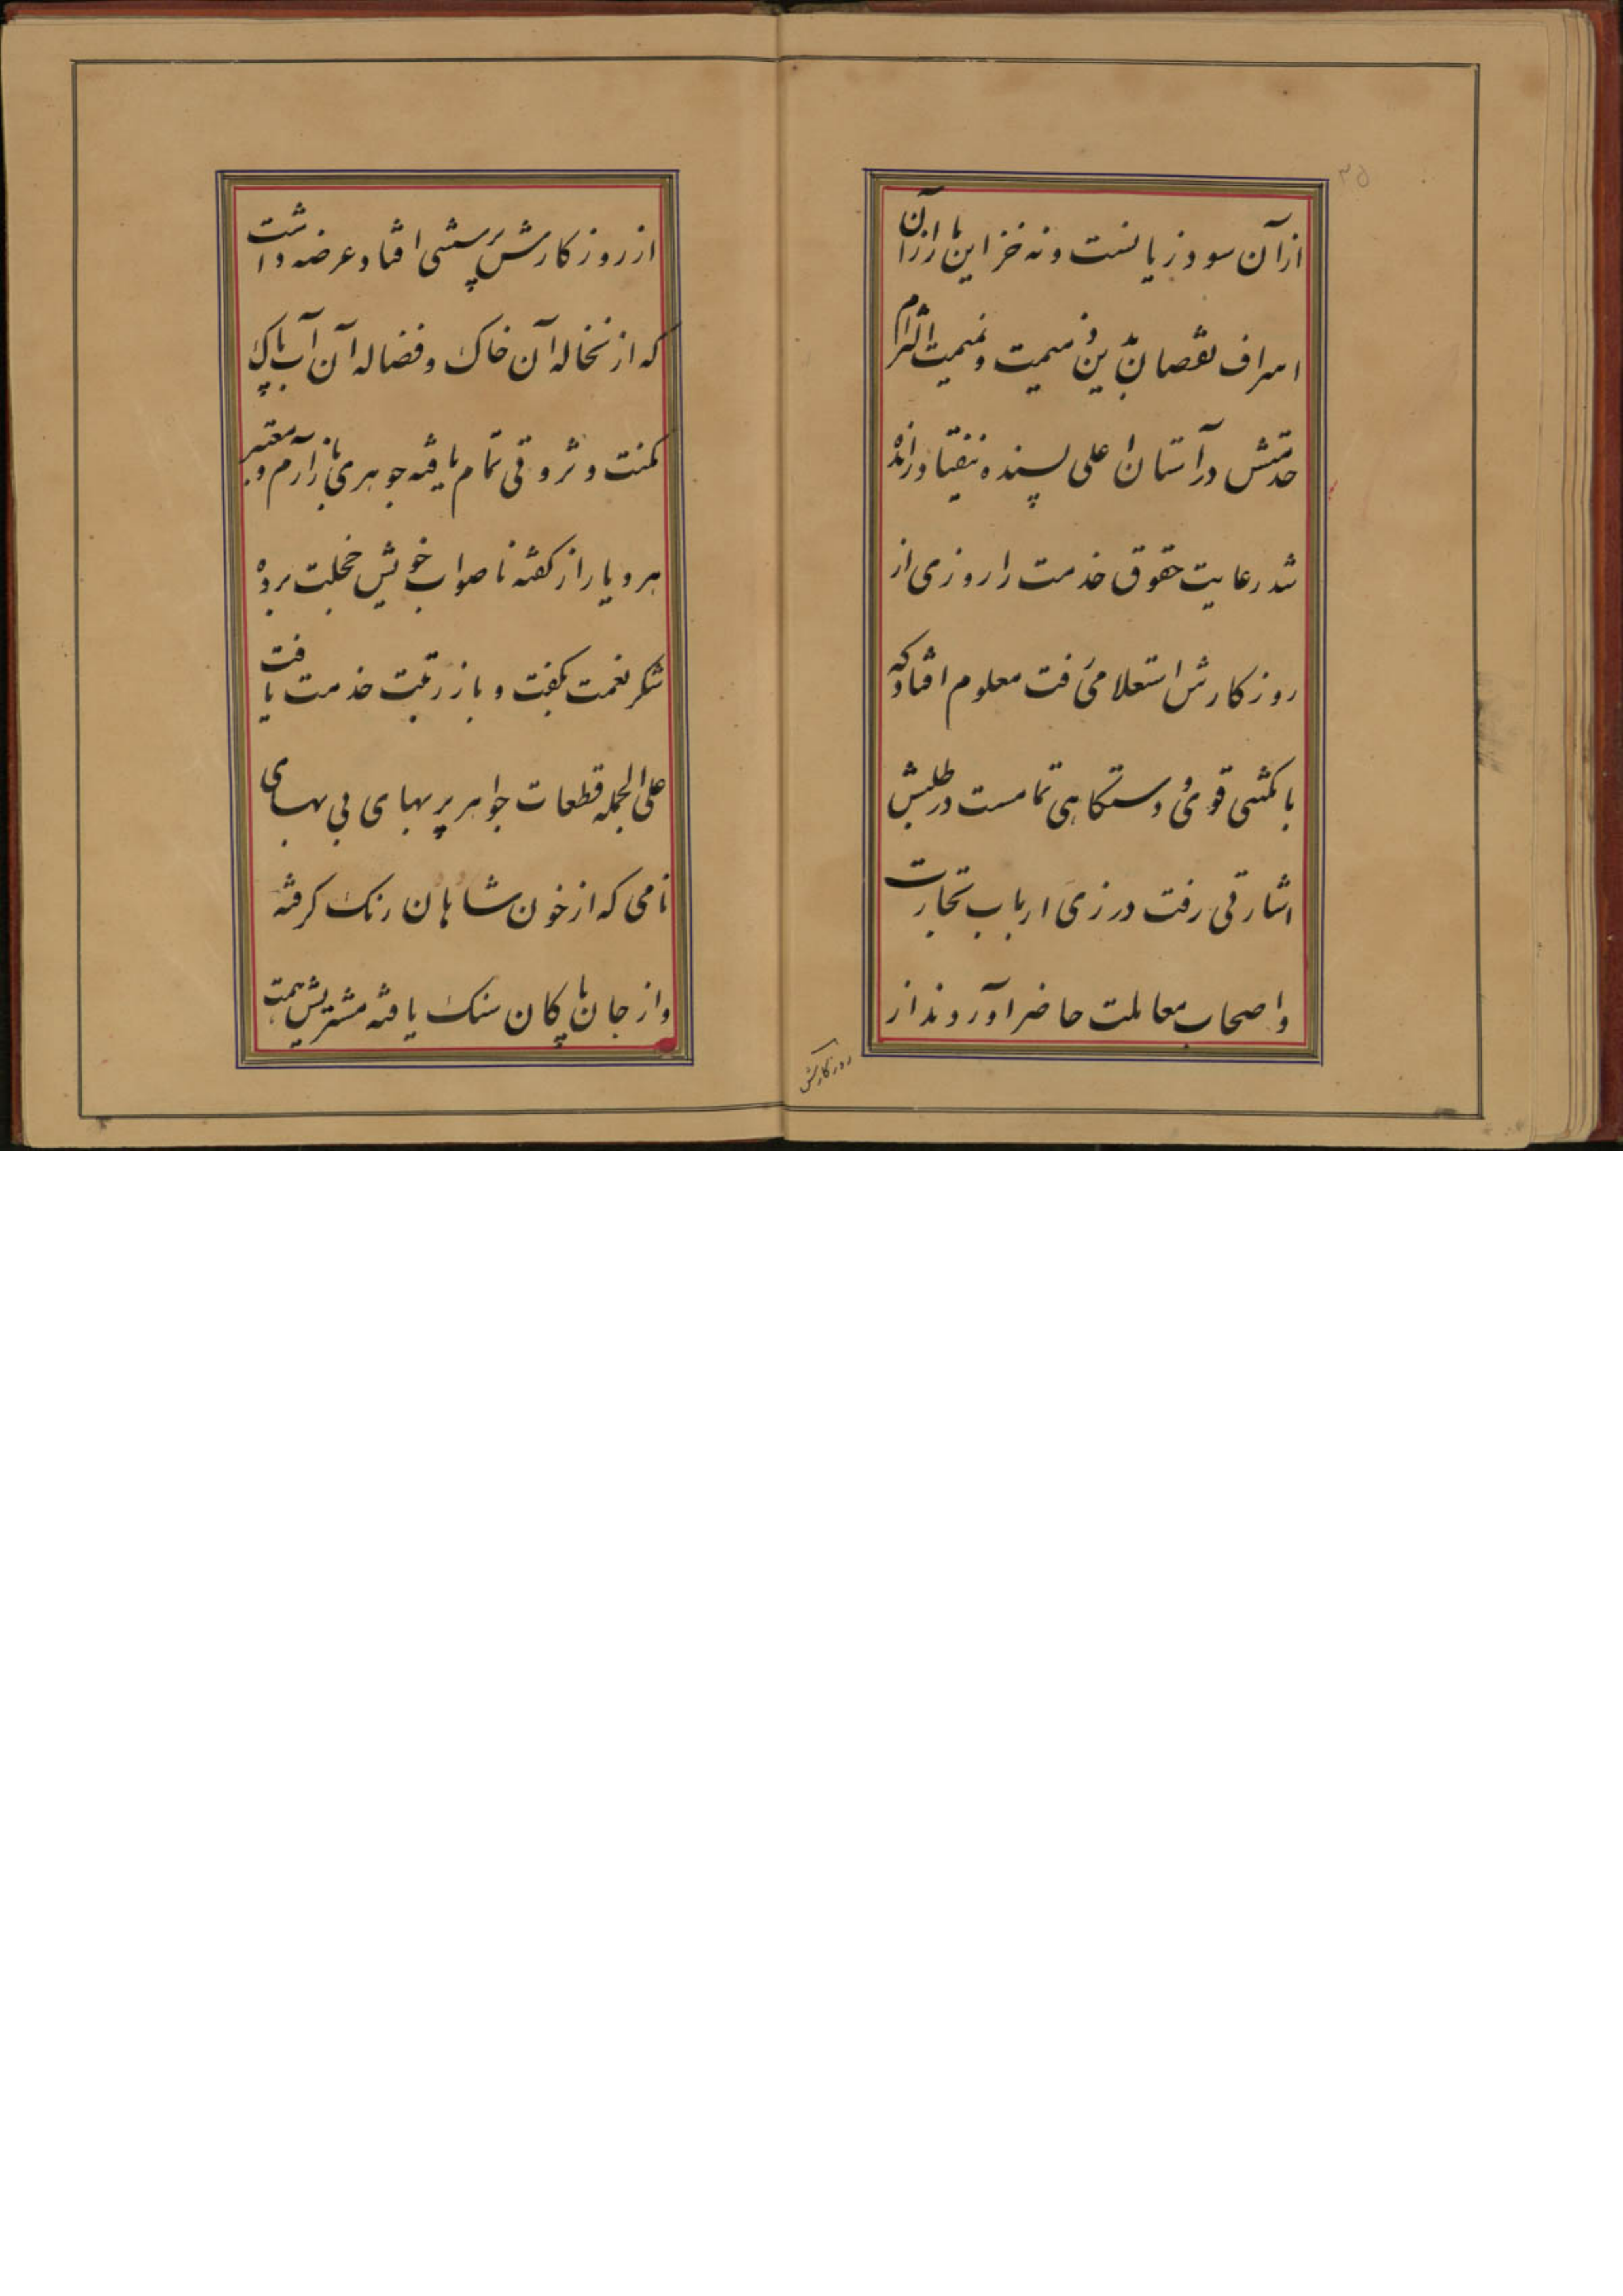 از آن سود و زیانست و نه خزاین را از آن
اسراف نقصان بدین میمت و نمیمت التزام
خدمتش در آستان اعلی پسنده نیفتاد رانده
شد رعایت حقوق خدمت را روزی از
روزکارش استعلامی رفت معلوم افتاد که
با مکنتی قوی و دستکاهی تمامست در طلبش
اشارتی رفت در زی ارباب تجارت
و اصحاب معاملت حاضر آوردند از
روزکارش
از روزکارش پرسشی افتاد عرضه داشت
که از نخاله آن خاک و فضاله آن آب پاک
مکنت و ثروتی تمام یافته جوهری بازارم و معتبر
هر دیار از کفته ناصواب خویش خجلت برده
شکر نعمت بکفت و باز رتبت خدمت یافت
علی الجمله قطعات جواهر پر بهای بی بهای
نامی که از خون شاهان رنک کرفته
و از جان پاکان سنک یافته مشتریش همت